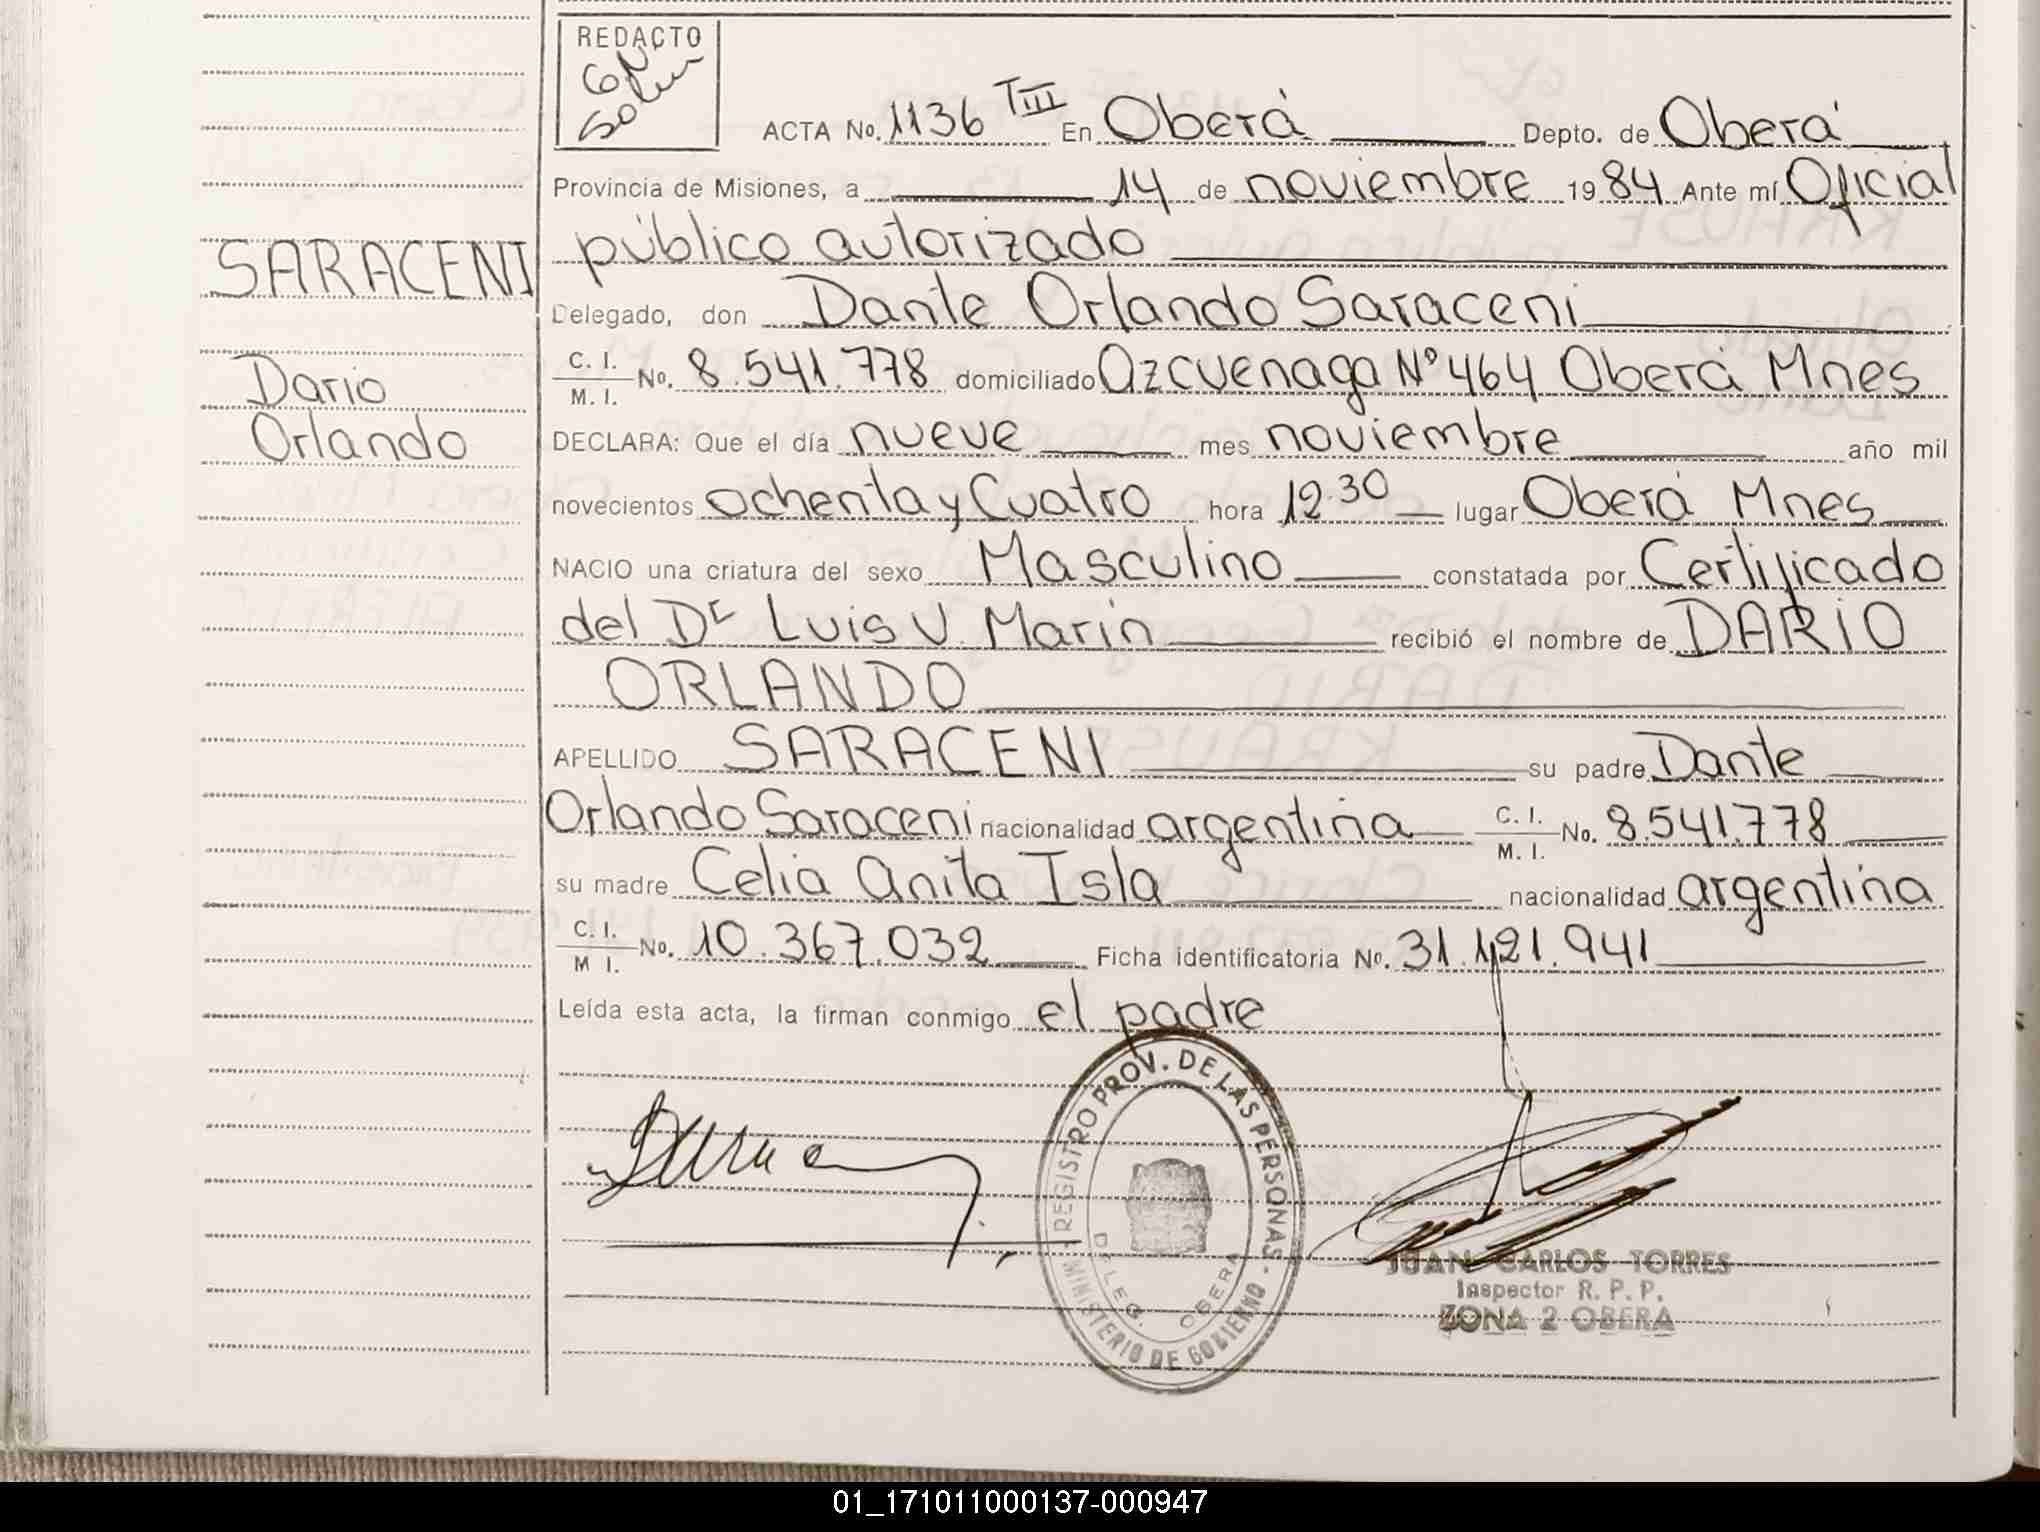 REDACTO
ACTA No. 1136 TIII En Oberá Depto. de Oberá
Provincia de Misiones, a 14 de noviembre 1984 Ante mí Oficial
público autorizado
SARACENI
Delegado, don Dante Orlando Saraceni
C. I.
M. I. No. 8.541.778 domiciliado Azcuenaga Nº 464 Oberá Mnes
Dario
Orlando
DECLARA: Que el día nueve mes noviembre año mil
novecientos ochenta y Cuatro hora 12.30 lugar Oberá Mnes
NACIO una criatura del sexo Masculino constatada por Certificado
del Dr Luis V. Marin recibió el nombre de DARIO
ORLANDO
APELLIDO SARACENI su padre Dante
Orlando Saraceni nacionalidad argentina C. I.
M. I. No. 8.541.778
su madre Celia Anita Isla nacionalidad argentina
C. I.
M I. No. 10.367.032 Ficha identificatoria No. 31.121.941
Leída esta acta, la firman conmigo el padre
REGISTRO PROV. DE LAS PERSONAS
DELEG. OBERA
MINISTERIO DE GOBIERNO
JUAN CARLOS TORRES
Inspector R. P. P.
ZONA 2 OBERA
01_171011000137-000947